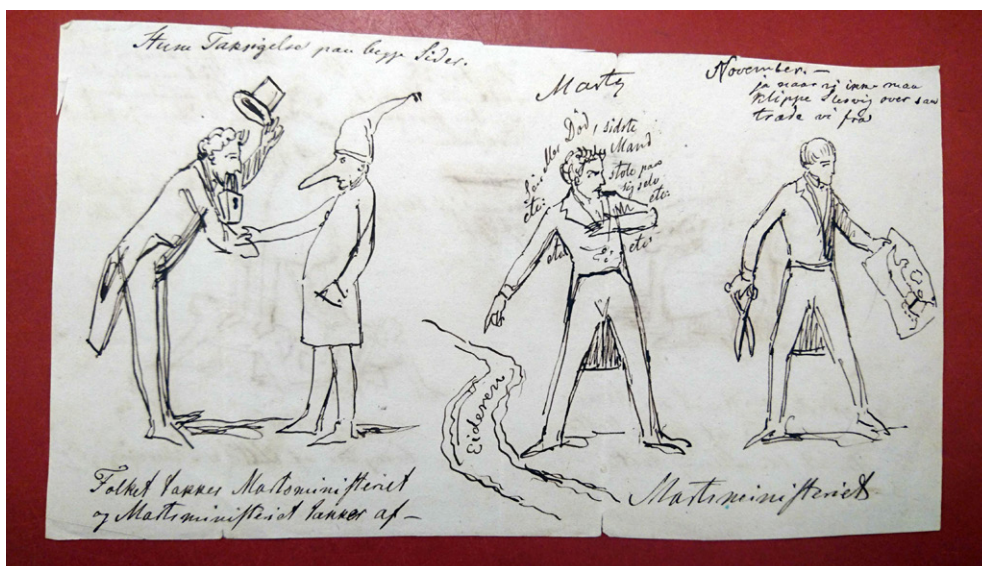 Stum Taksigelse paa begge Sider.
Folket takker Martsministeriet
og Martsministeriet takker af —
Marts
Død, sidste
Mand
stole paa
sig selv
etc.
etc.
etc.
etc.
Eideren
November. —
ja naar vi ikke maa
klippe Slesvig over saa
træde vi fra
Martsministeriet